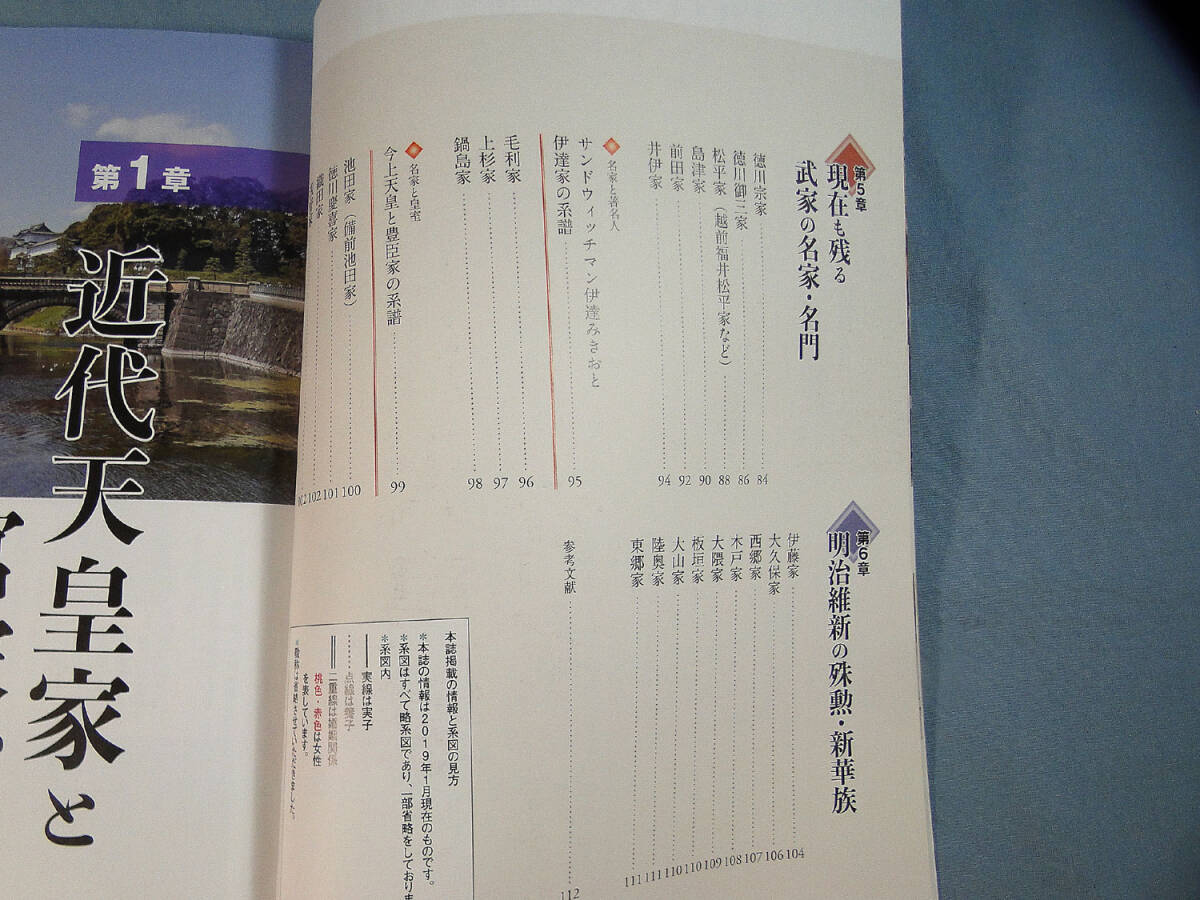 第5章
現在も残る
武家の名家・名門
徳川宗家 84
徳川御三家 86
松平家（越前福井松平家など） 88
島津家 90
前田家 92
井伊家 94
名家と著名人
サンドウィッチマン伊達みきおと
伊達家の系譜 95
毛利家 96
上杉家 97
鍋島家 98
名家と皇室
今上天皇と豊臣家の系譜 99
池田家（備前池田家） 100
徳川慶喜家 101
織田家 102
第6章
明治維新の殊勲・新華族
伊藤家 104
大久保家 106
西郷家 107
木戸家 108
大隈家 109
板垣家 110
大山家 110
陸奥家 111
東郷家 111
参考文献 112
本誌掲載の情報と系図の見方
＊本誌の情報は2019年1月現在のものです。
＊系図はすべて略系図であり、一部省略をしており
＊系図内
実線は実子
点線は養子
二重線は婚姻関係
桃色・赤色は女性
を表しています。
＊敬称は省略させていただきました。
第1章
近代天皇家と